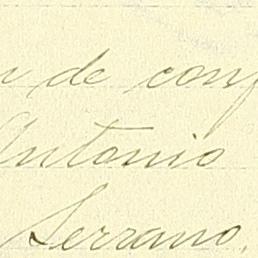 de conf
Antonio
Serrano.